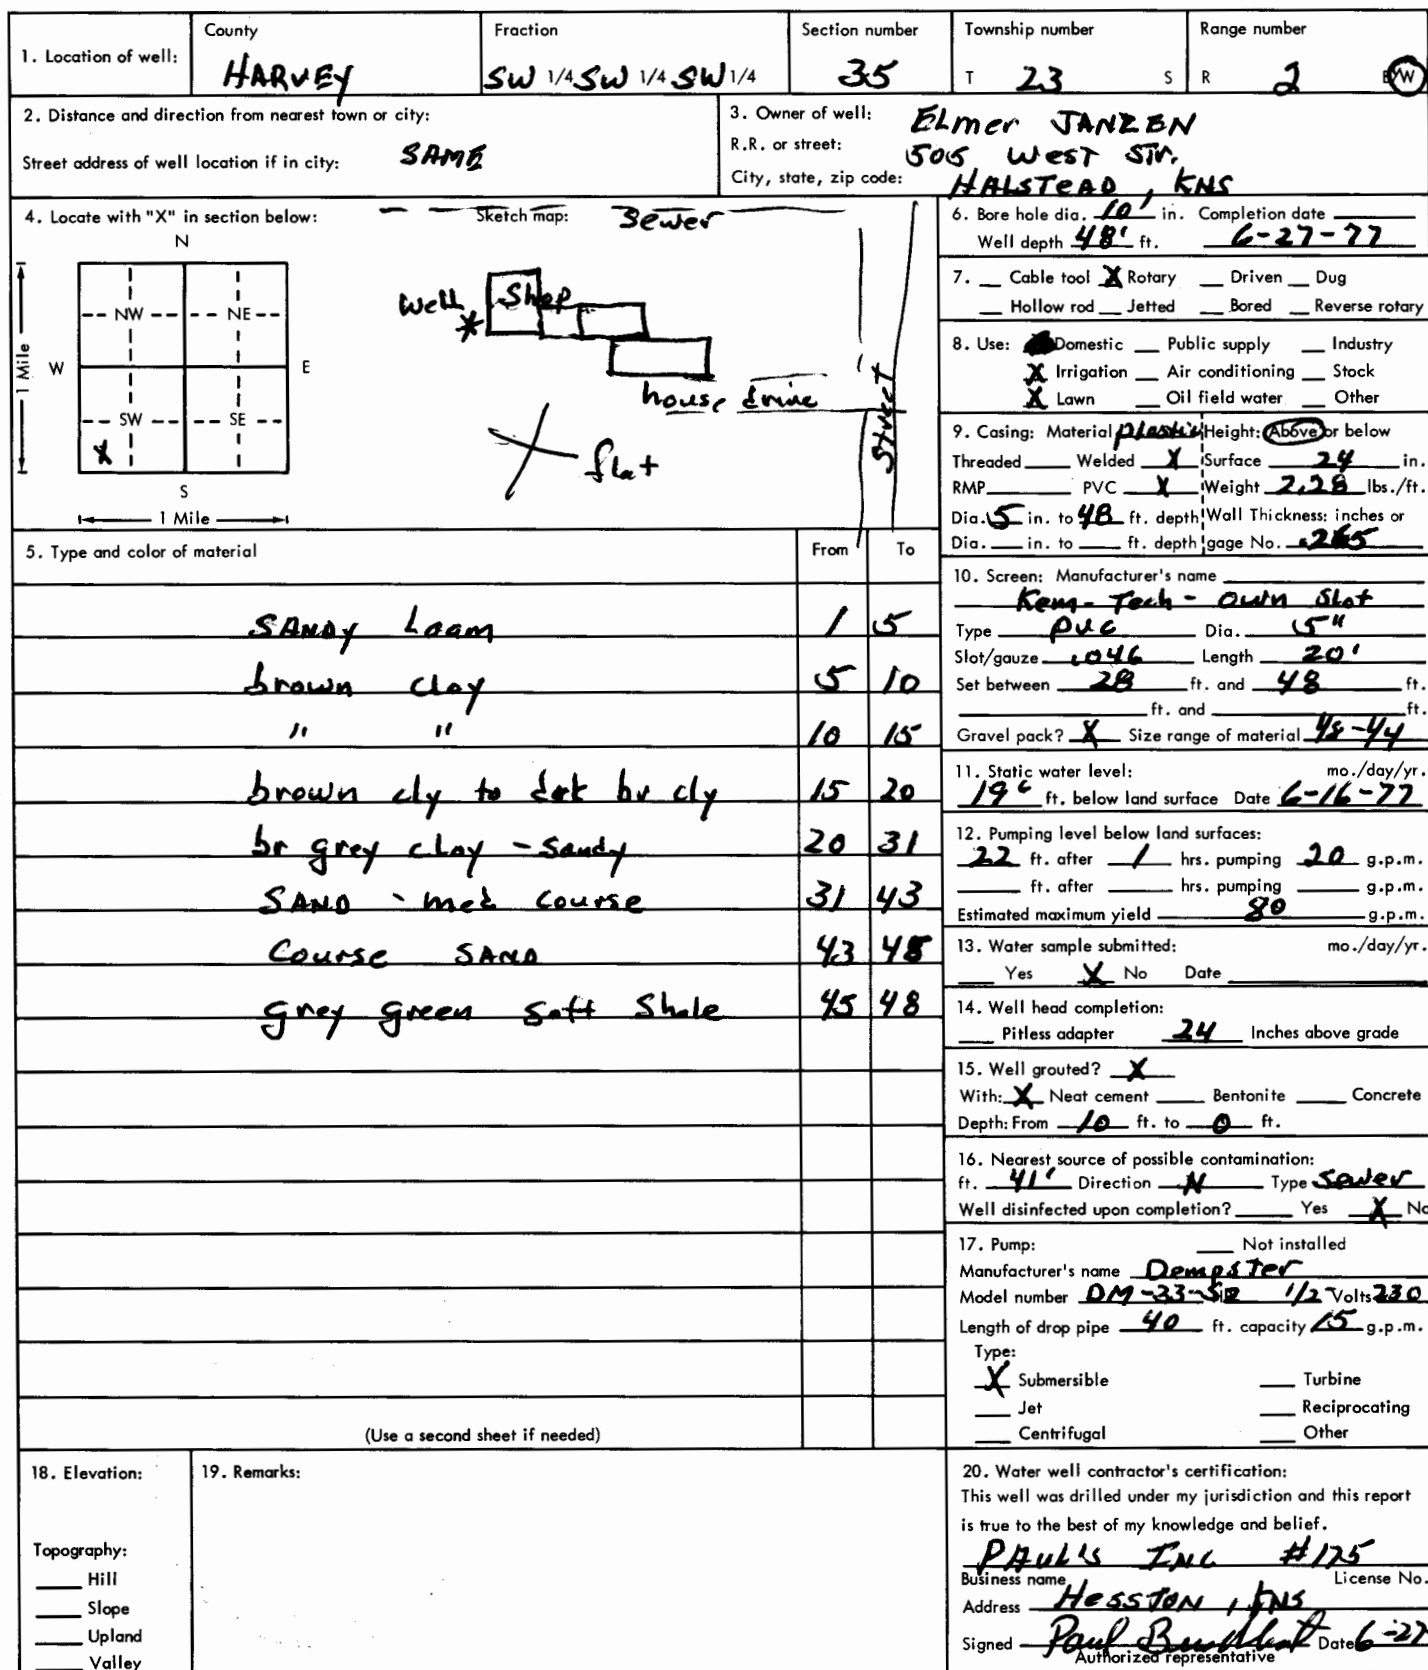 1. Location of well:
County
HARVEY
Fraction
SW 1/4 SW 1/4 SW 1/4
Section number
35
Township number
T 23 S
Range number
R 2 W
2. Distance and direction from nearest town or city:
Street address of well location if in city: SAME
3. Owner of well: Elmer JANZEN
R.R. or street: 505 West Str.
City, state, zip code: HALSTEAD, KNS
4. Locate with "X" in section below:
N
NW NE
W E
SW SE
X
S
1 Mile
1 Mile
Sketch map:
Sewer
Well Shop
house drive
flat
Street
5. Type and color of material From To
SANDY Loam 1 5
brown clay 5 10
" " 10 15
brown cly to drk br cly 15 20
br grey clay - Sandy 20 31
SAND - med Course 31 43
Course SAND 43 45
grey green Soft Shale 45 48
(Use a second sheet if needed)
6. Bore hole dia. 10' in. Completion date
Well depth 48' ft. 6-27-77
7. Cable tool X Rotary Driven Dug
Hollow rod Jetted Bored Reverse rotary
8. Use: Domestic Public supply Industry
X Irrigation Air conditioning Stock
X Lawn Oil field water Other
9. Casing: Material plastic Height: Above or below
Threaded Welded X Surface 24 in.
RMP PVC X Weight 2.28 lbs./ft.
Dia. 5 in. to 48 ft. depth Wall Thickness: inches or
Dia. in. to ft. depth gage No. .265
10. Screen: Manufacturer's name
Kem-Tech - Own Slot
Type PVC Dia. 5"
Slot/gauze .046 Length 20'
Set between 28 ft. and 48 ft.
ft. and ft.
Gravel pack? X Size range of material 1/8-1/4
11. Static water level: mo./day/yr.
19 ft. below land surface Date 6-16-77
12. Pumping level below land surfaces:
22 ft. after 1 hrs. pumping 20 g.p.m.
ft. after hrs. pumping g.p.m.
Estimated maximum yield 80 g.p.m.
13. Water sample submitted: mo./day/yr.
Yes X No Date
14. Well head completion:
Pitless adapter 24 Inches above grade
15. Well grouted? X
With: X Neat cement Bentonite Concrete
Depth: From 10 ft. to 0 ft.
16. Nearest source of possible contamination:
ft. 41' Direction N Type Sewer
Well disinfected upon completion? Yes X No
17. Pump: Not installed
Manufacturer's name Dempster
Model number DM-33-S 1/2 Volts 230
Length of drop pipe 40 ft. capacity 15 g.p.m.
Type:
X Submersible Turbine
Jet Reciprocating
Centrifugal Other
18. Elevation:
Topography:
Hill
Slope
Upland
Valley
19. Remarks:
20. Water well contractor's certification:
This well was drilled under my jurisdiction and this report
is true to the best of my knowledge and belief.
PAUL'S INC #175
Business name License No.
Address Hesston, KNS
Signed Paul Date 6-27
Authorized representative